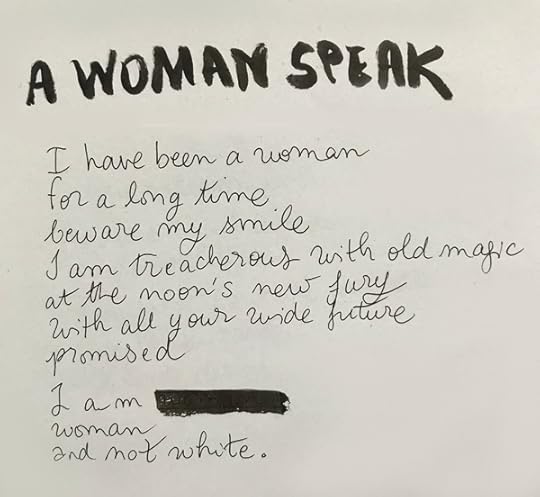 A WOMAN SPEAK
I have been a woman
for a long time
beware my smile
I am treacherous with old magic
at the noon's new fury
with all your wide future
promised
I am
woman
and not white.